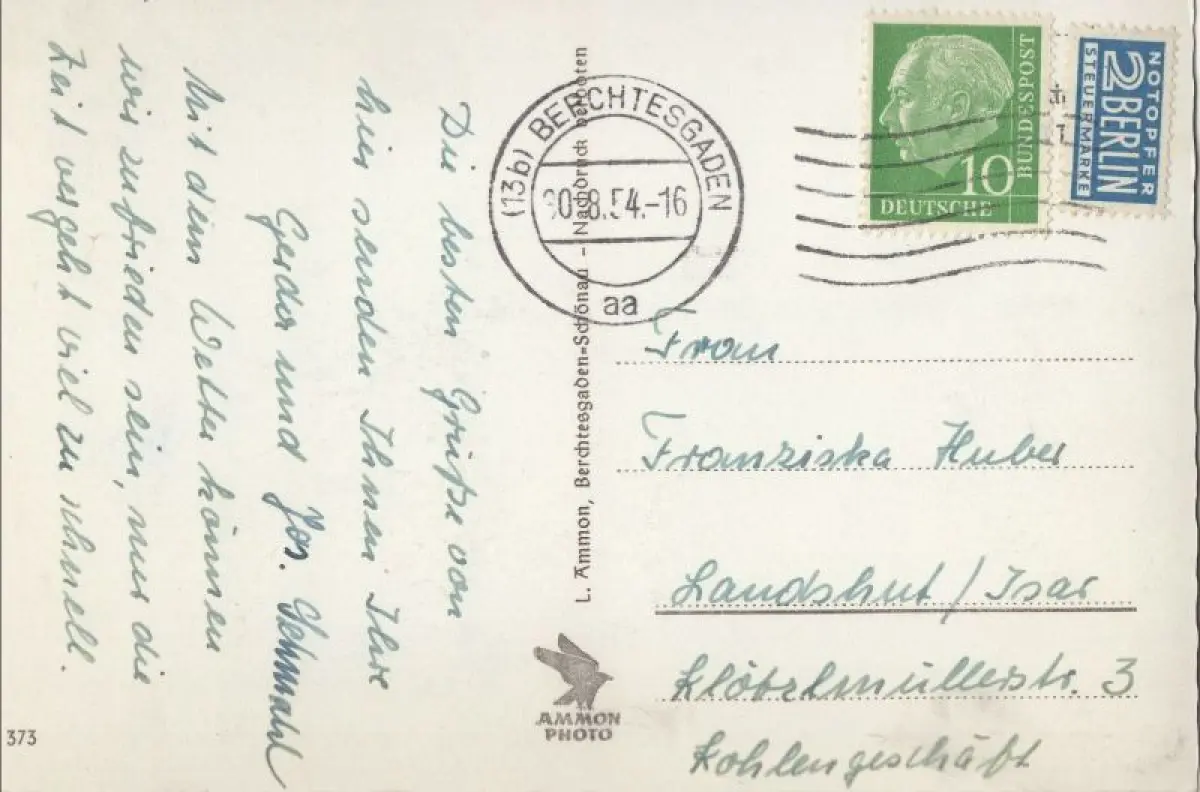 Die besten Grüße von
hier senden Ihnen Ihre
Gerda und Jos. Schmahl
Mit dem Wetter können
wir zufrieden sein, nur die
Zeit vergeht viel zu schnell.
373
L. Ammon, Berchtesgaden=Schönau - Nachdruck verboten
AMMON
PHOTO
(13b) BERCHTESGADEN
30.8.54.-16
aa
10
DEUTSCHE
BUNDESPOST
NOTOPFER
2 BERLIN
STEUERMARKE
Frau
Franziska Huber
Landshut / Isar
Klötzlmüllerstr. 3
Kohlengeschäft